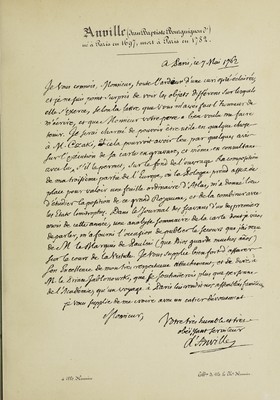 Anville (Jean Baptiste Bourguignon d')
né à Paris en 1697, mort à Paris en 1782.
à Paris, ce 7 Mai 1762
Je vous connois, Monsieur, toute l'ardeur d'une curiosité éclairée,
et je ne suis point surpris de voir les objets différens sur lesquels
elle s'exerce, selon la lettre que vous m'avez fait l'honneur de
m'écrire, et que Monsieur votre père a bien voulu me faire
tenir. Je serai charmé de pouvoir être utile en quelque chose
à M. Czaki, et cela pourroit avoir lieu par quelques avis
sur l'exécution de sa carte en gravant, et même en consultant
avec lui, s'il le permet, sur le fond de l'ouvrage. La composition
de ma troisième partie de l'Europe, où la Pologne prend assez de
place pour valoir une feuille ordinaire d'Atlas, m'a donné lieu
d'étudier la position de ce grand Royaume, et de la combiner avec
les Etats limitrophes. Dans le Journal des sçavans d'un des premiers
mois de cette année, une analyse sommaire de la carte dont je viens
de parler, m'a fourni l'occasion de publier le secours que j'ai reçu
de M. le Marquis de Paulmi (que Dieu garde)
sur le cours de la Vistule. Je vous supplie bien fort d'assurer
Son Excellence de mon très respectueux attachement, et de dire à
M. le Prince Jablonowski, que je souhaiterois plus que personne
de l'Académie, qu'un voyage à Paris
je vous supplie de me croire avec un entier dévouement
Monsieur,
Votre très humble et très
obéissant serviteur
d'Anville